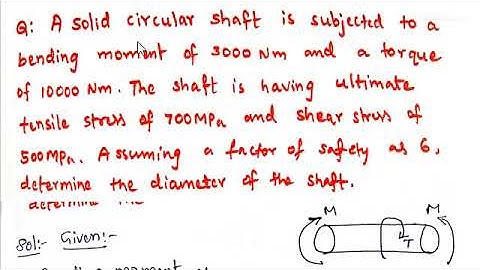 Q: A solid circular shaft is subjected to a
bending moment of 3000 Nm and a torque
of 10000 Nm. The shaft is having ultimate
tensile stress of 700MPa and shear stress of
500MPa. Assuming a factor of safety as 6,
determine the diameter of the shaft.
determine the
Sol:- Given:-
M M
T